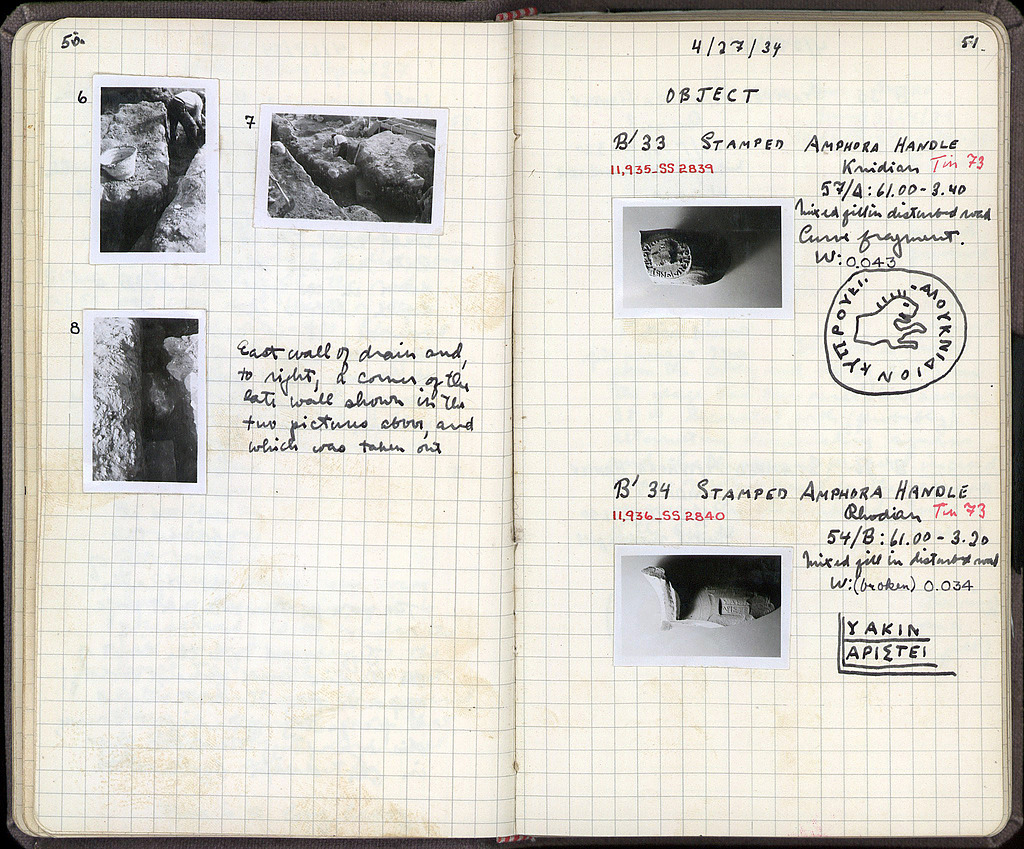 50.
6
7
8
East wall of drain and,
to right, a corner of the
late wall shown in the
two pictures above, and
which was taken out
4/27/34
51.
OBJECT
B' 33 STAMPED AMPHORA HANDLE
11,935_SS 2839
Knidian Tin 73
57/Δ:61.00-3.40
Mixed fill in disturbed road
Curve fragment.
W: 0.043
ΚΝΙΔΙΟΝ
B' 34 STAMPED AMPHORA HANDLE
11,936_SS 2840
Rhodian Tin 73
54/B:61.00-3.20
Mixed fill in disturbed road
W:(broken) 0.034
ΥΑΚΙΝ
ΑΡΙΣΤΕΙ